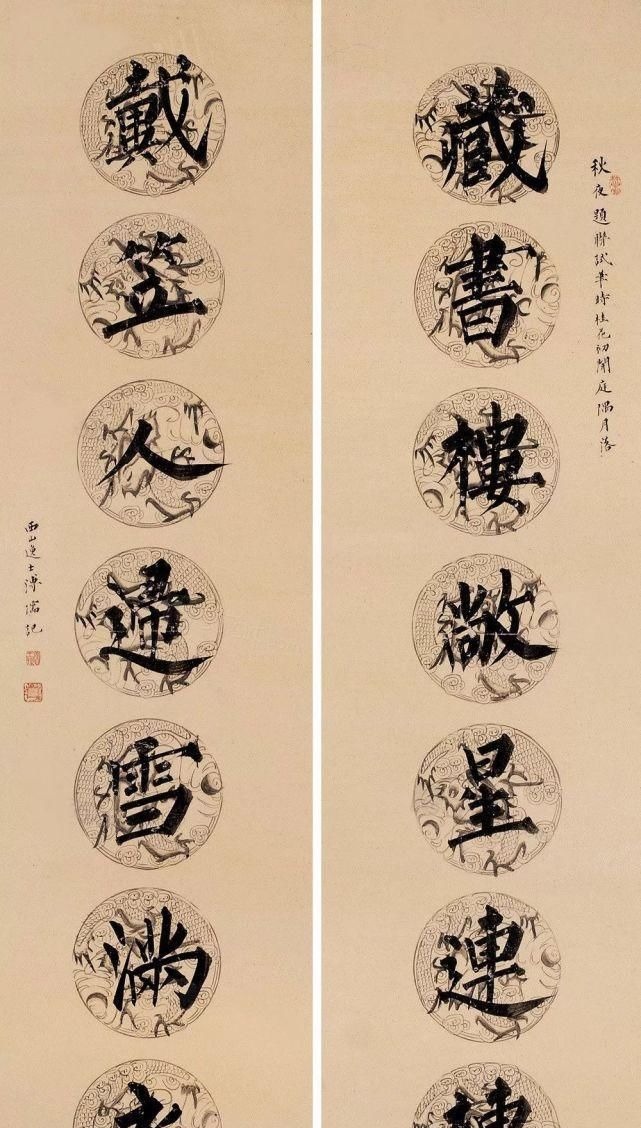 秋夜題聯試筆時桂花初開庭隅月落
藏書樓敞星連
戴笠人歸雪滿
西山逸士溥儒記